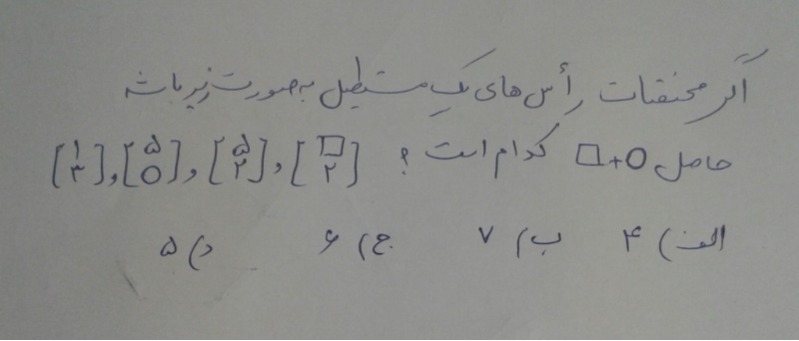 اگر مختصات رأس های یک مستطیل به صورت زیر باشد
حاصل □+○ کدام است ؟ [□ ۲] , [۵ ۲] , [۵ ○] , [۱ ۳]
الف) ۴ ب) ۷ ج) ۶ د) ۵